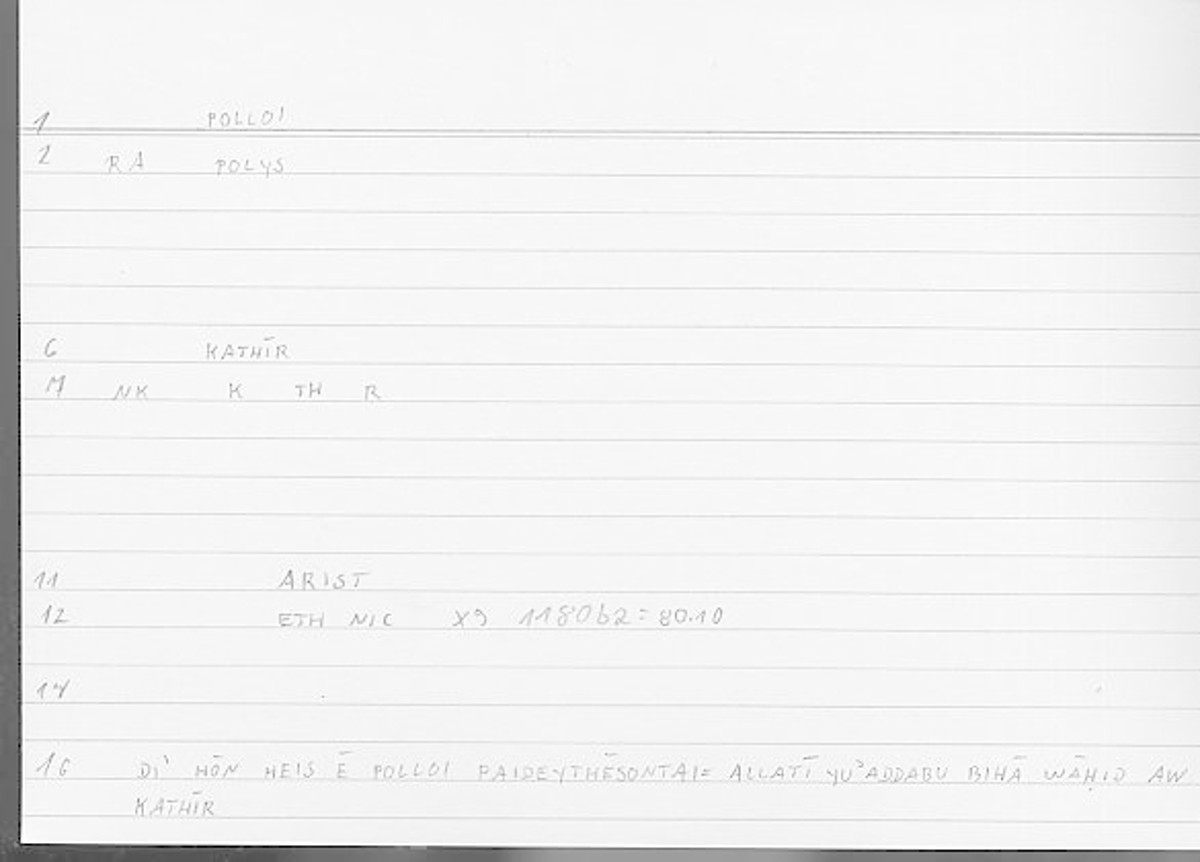 1 POLLOI
2 RA POLYS
6 KATHĪR
7 NK K TH R
11 ARIST
12 ETH NIC X9 1180b2 = 80.10
14
16 DI' HŌN HEIS Ē POLLOI PAIDEYTHĒSONTAI = ALLATĪ YUʾADDABU BIHĀ WĀḤID AW
KATHĪR